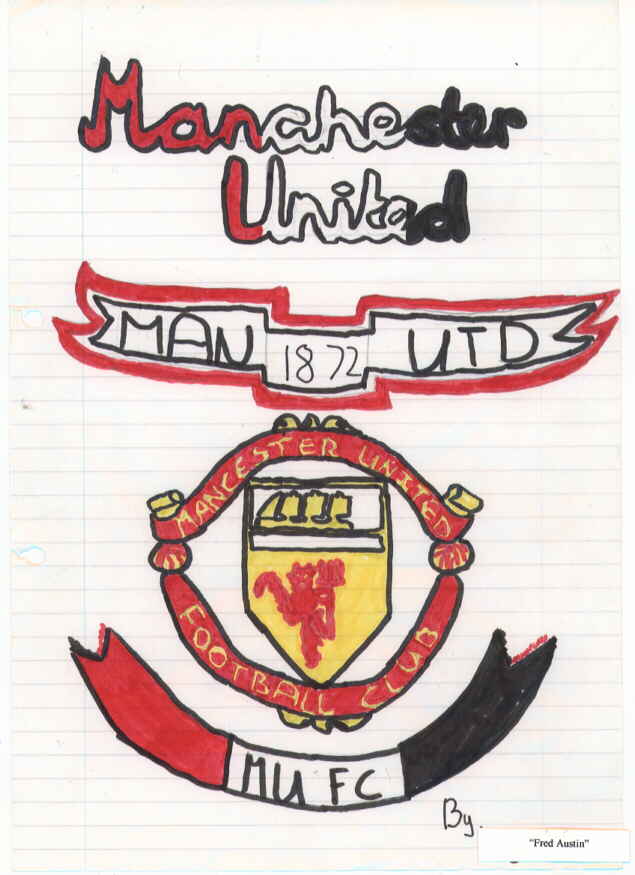 Manchester
United
MAN 1872 UTD
MANCESTER UNITED
FOOTBALL CLUB
MU FC
By.
"Fred Austin"